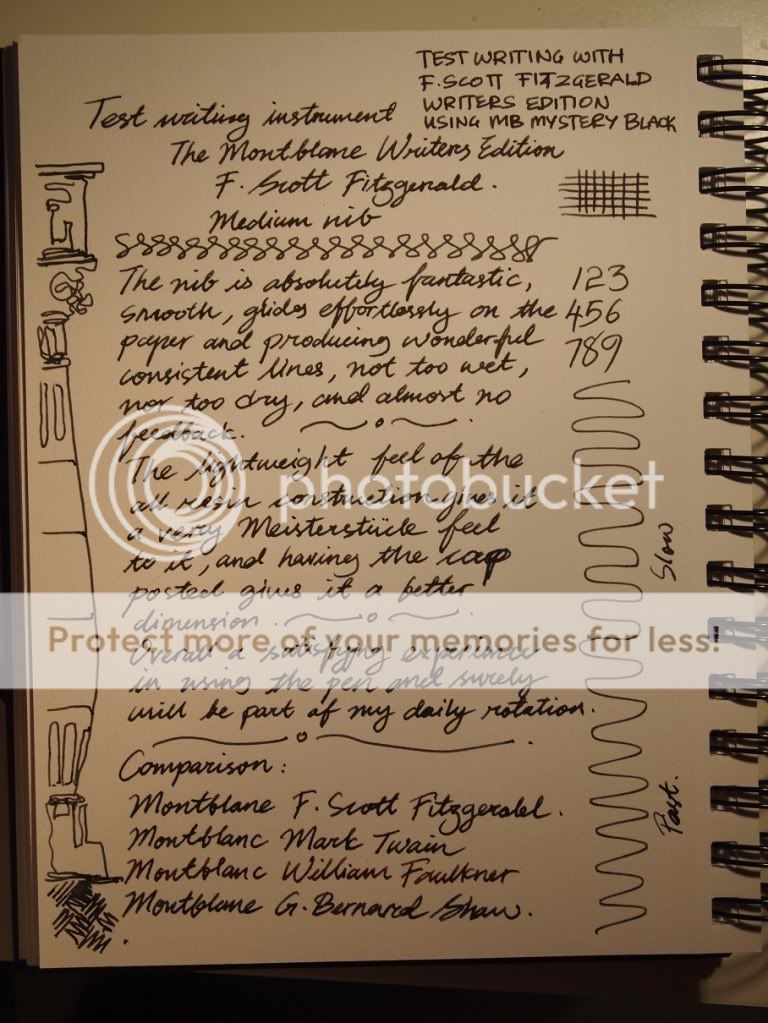 TEST WRITING WITH
F. SCOTT FITZGERALD
WRITERS EDITION
USING MB MYSTERY BLACK
Test writing instrument
The Montblanc Writers Edition
F. Scott Fitzgerald.
Medium nib
The nib is absolutely fantastic,
smooth, glides effortlessly on the
paper and producing wonderful
consistent lines, not too wet,
nor too dry, and almost no
feedback.
123
456
789
The lightweight feel of the
all resin construction gives it
a very Meisterstück feel
to it, and having the cap
posted gives it a better
dimension.
Overall a satisfying experience
in using the pen and surely
will be part of my daily rotation.
Slow
Fast.
Comparison:
Montblanc F. Scott Fitzgerald.
Montblanc Mark Twain
Montblanc William Faulkner
Montblanc G. Bernard Shaw.
photobucket
Protect more of your memories for less!